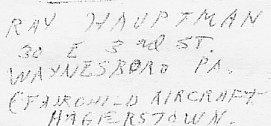 RAY HAUPTMAN
30 E 3RD ST.
WAYNESBORO PA.
(FAIRCHILD AIRCRAFT
HAGERSTOWN.